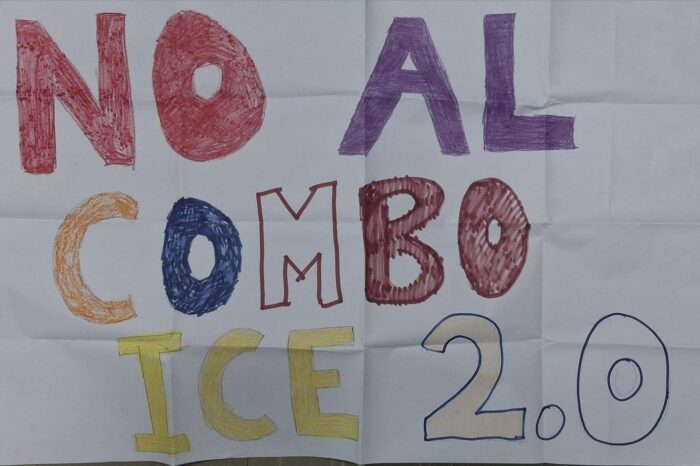 NO AL
COMBO
ICE 2.0